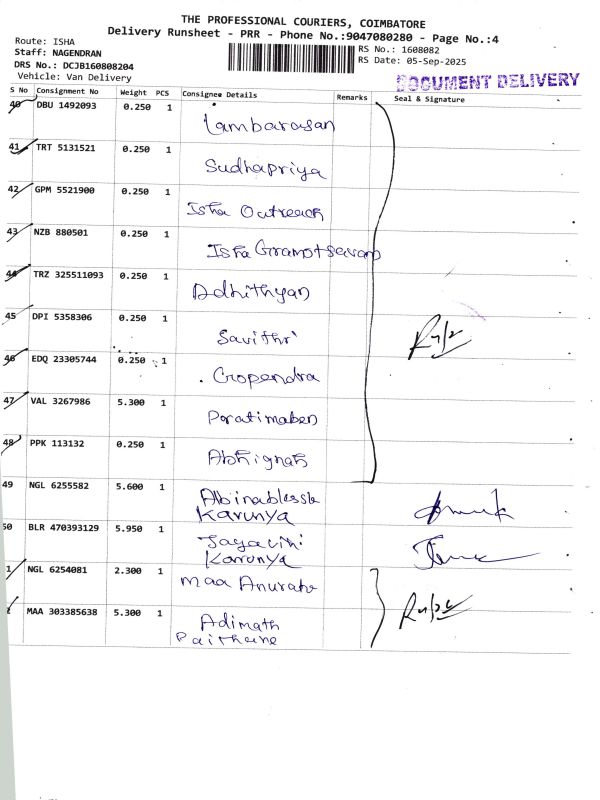 THE PROFESSIONAL COURIERS, COIMBATORE
Delivery Runsheet - PRR - Phone No.:9047080280 - Page No.:4
Route: ISHA
Staff: NAGENDRAN
DRS No.: DCJB160808204
Vehicle: Van Delivery
RS No.: 1608082
RS Date: 05-Sep-2025
DOCUMENT DELIVERY
S No Consignment No Weight PCS Consignee Details Remarks Seal & Signature
40 DBU 1492093 0.250 1 Lambarasan
41 TRT 5131521 0.250 1 Sudhapriya
42 GPM 5521900 0.250 1 Isha Outreach
43 NZB 880501 0.250 1 Isha Gramotsavam
44 TRZ 325511093 0.250 1 Adhithyan
45 DPI 5358306 0.250 1 Savithri
46 EDQ 23305744 0.250 1 Gopendra
47 VAL 3267986 5.300 1 Poratimaben
48 PPK 113132 0.250 1 Abhignah
49 NGL 6255582 5.600 1
Karunya
50 BLR 470393129 5.950 1
Karunya
1 NGL 6254081 2.300 1 Maa
MAA 303385638 5.300 1 Adimath